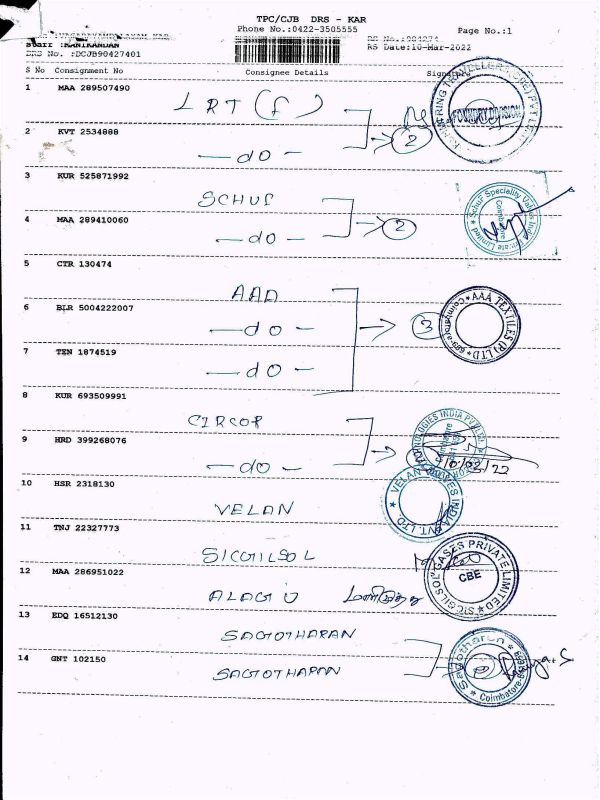 TPC/CJB DRS - KAR
Phone No.:0422-3505555 Page No.:1
Staff :MANIKANDAN RS Date:10-Mar-2022
DRS No. :DCJB90427401
S No Consignment No Consignee Details
1 MAA 289507490
LRT (f)
2 KVT 2534888
— do — 2
FOUNDRY DIVISION
3 KUR 525871992
SCHUF
Schuf Speciality Valves India Private Limited Coimbatore
4 MAA 289410060
— do — 2
5 CTR 130474
AAA
AAA TEXTILES (P) LTD
6 BLR 5004222007
— do — 3
7 TEN 1874519
— do —
8 KUR 693509991
CIRCOR
TECHNOLOGIES INDIA PVT. LTD.
9 HRD 399268076
— do — 10/03/22
10 HSR 2318130
VELAN
VELAN VALVES INDIA PVT. LTD
11 TNJ 22327773
SICGILSOL
SICGILSOL GASES PRIVATE LIMITED CBE
12 MAA 286951022
13 EDQ 16512130
SAGOTHARAN
14 GNT 102150
SAGOTHARAN
Sagotharan Coimbatore